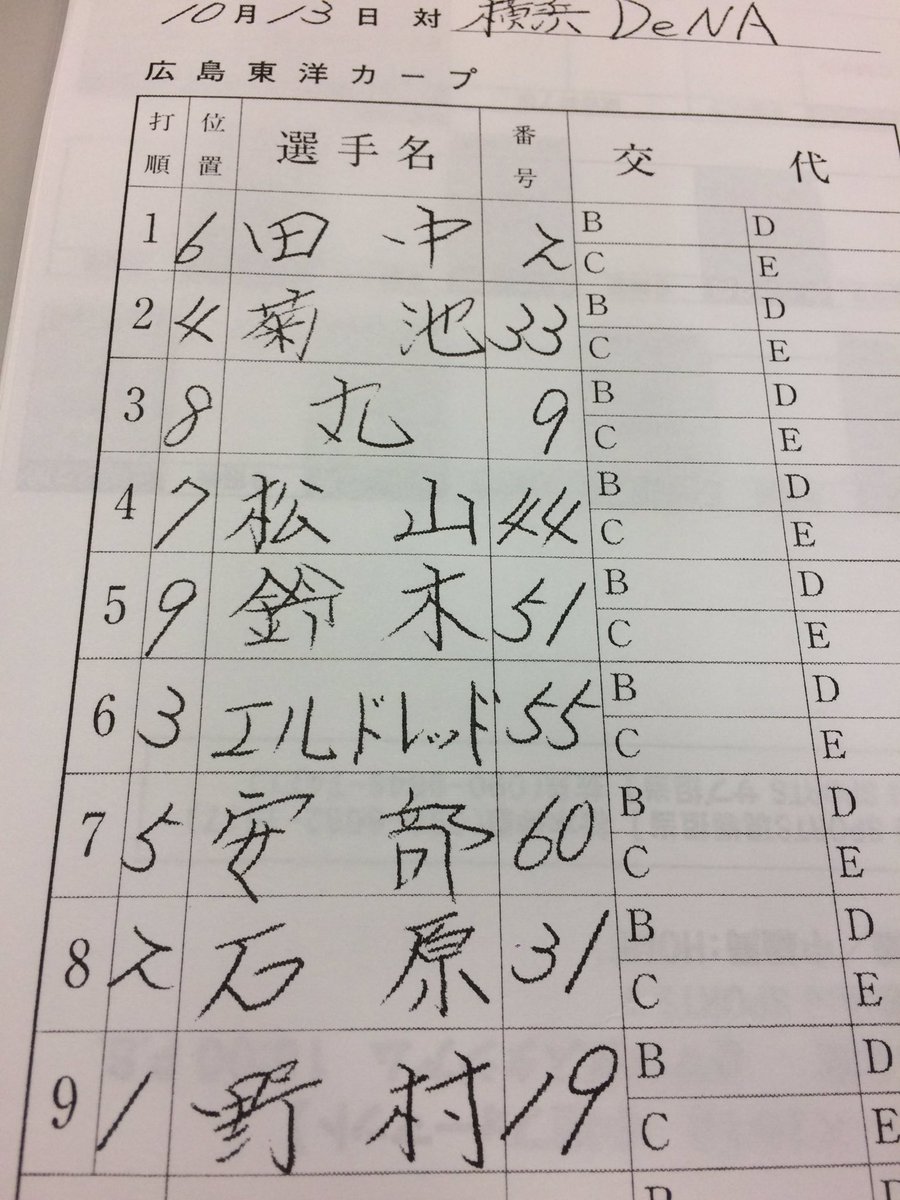 10月13日 対 横浜 DeNA
広島東洋カープ
打順 位置 選手名 番号 交代
1 6 田中 2 B D
C E
2 4 菊池 33 B D
C E
3 8 丸 9 B D
C E
4 7 松山 44 B D
C E
5 9 鈴木 51 B D
C E
6 3 エルドレッド 55 B D
C E
7 5 安部 60 B D
C E
8 2 石原 31 B D
C E
9 1 野村 19 B D
C E
B D